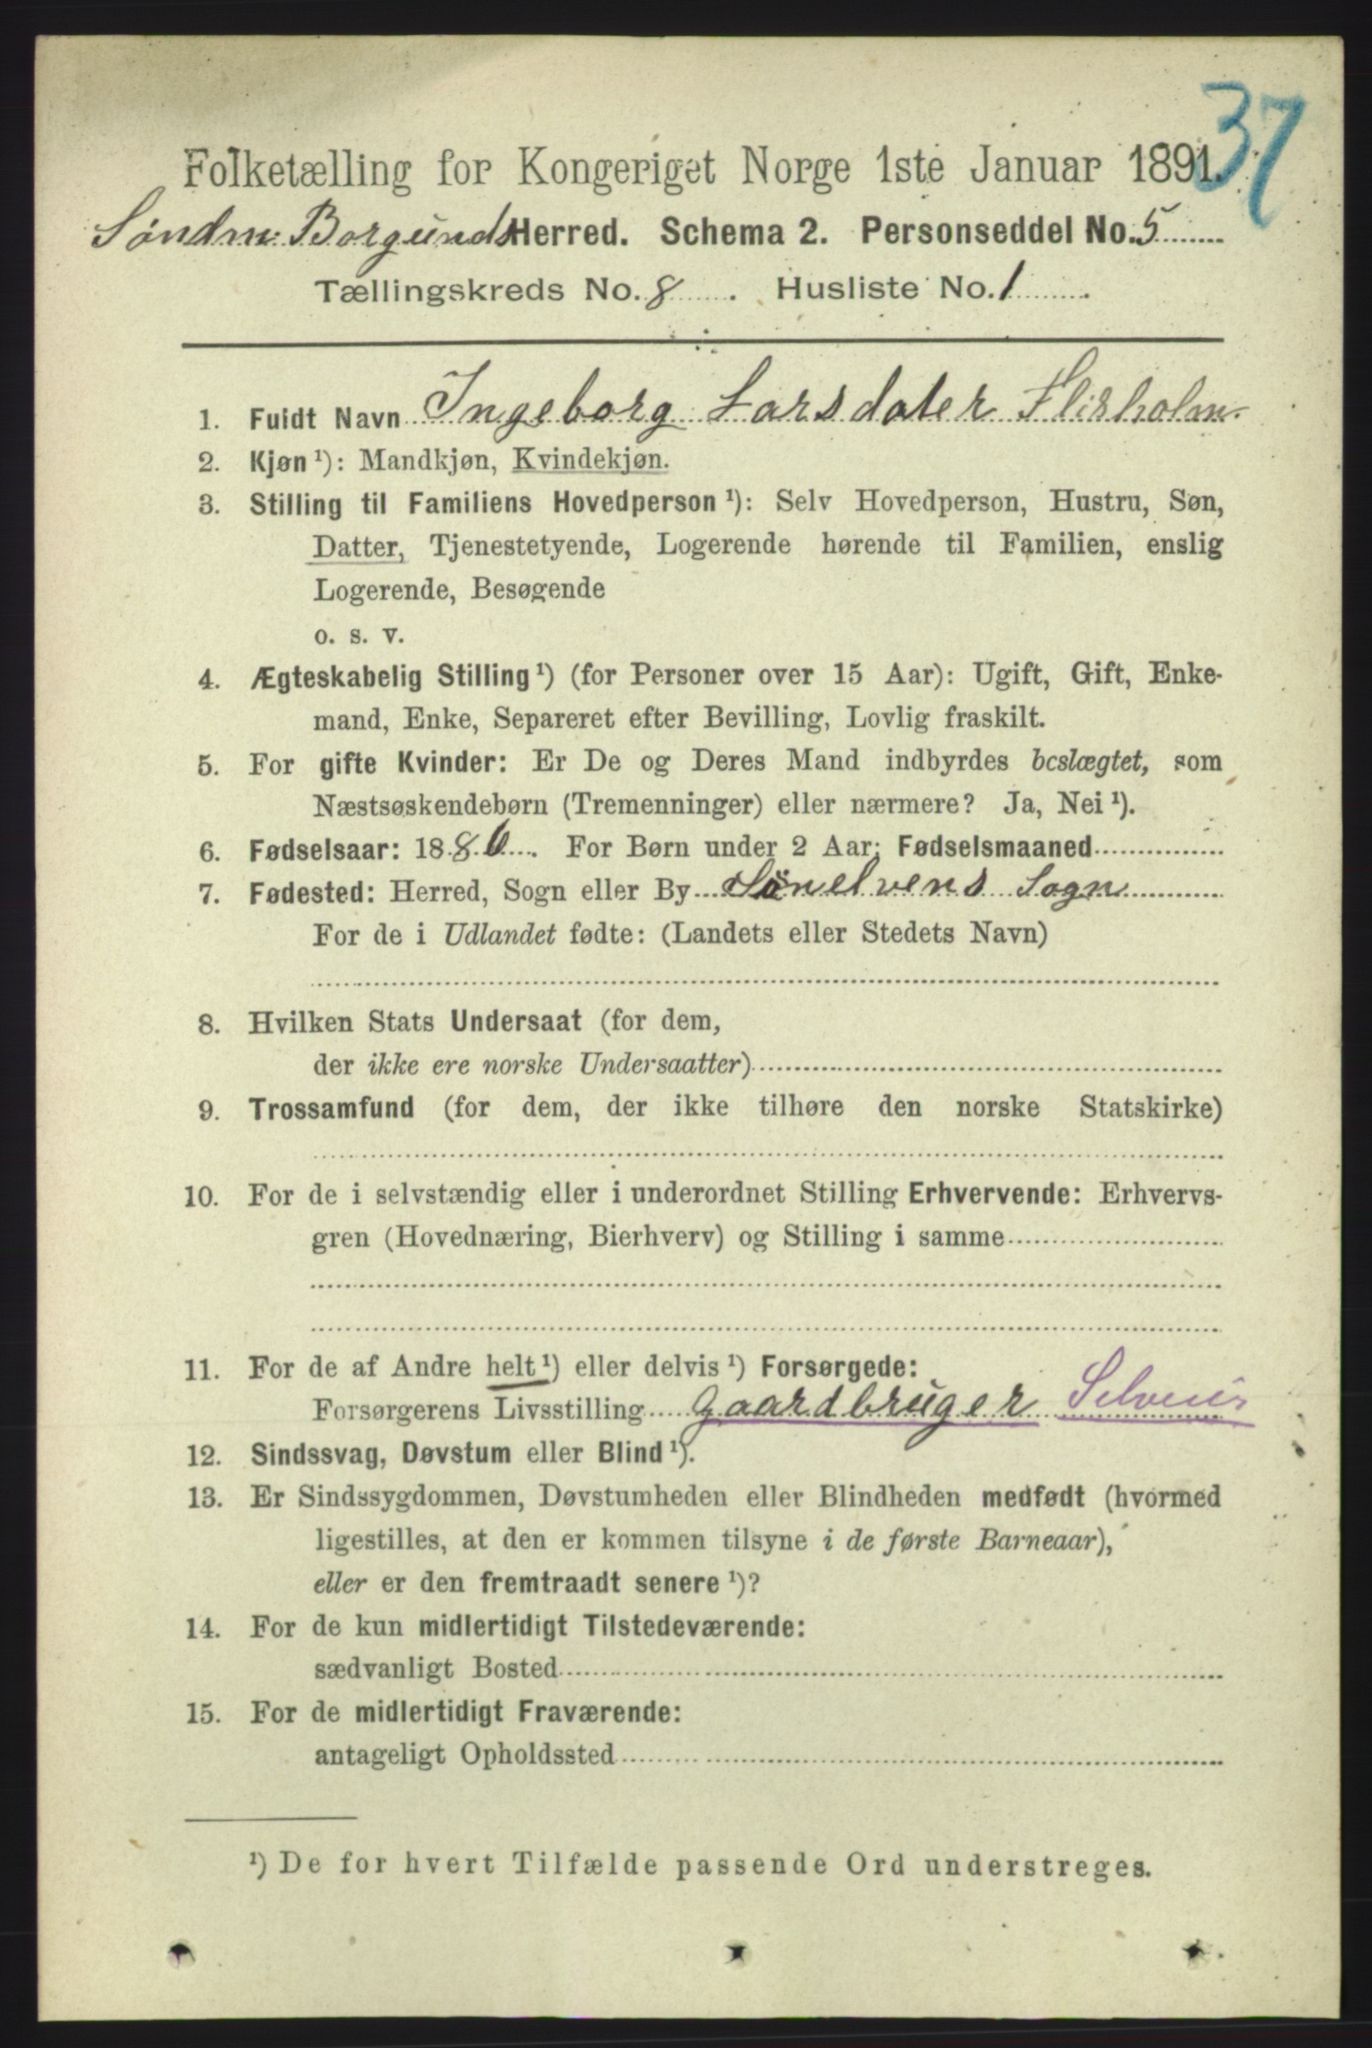 37
Folketælling for Kongeriget Norge 1ste Januar 1891.
Søndm: Borgunds Herred. Schema 2. Personseddel No. 5
Tællingskreds No. 8. Husliste No. 1.
1. Fuldt Navn Ingeborg Larsdater Flisholm
2. Kjøn ¹): Mandkjøn, Kvindekjøn.
3. Stilling til Familiens Hovedperson ¹): Selv Hovedperson, Hustru, Søn,
Datter, Tjenestetyende, Logerende hørende til Familien, enslig
Logerende, Besøgende
o. s. v.
4. Ægteskabelig Stilling ¹) (for Personer over 15 Aar): Ugift, Gift, Enke-
mand, Enke, Separeret efter Bevilling, Lovlig fraskilt.
5. For gifte Kvinder: Er De og Deres Mand indbyrdes beslægtet, som
Næstsøskendebørn (Tremenninger) eller nærmere? Ja, Nei ¹).
6. Fødselsaar: 1886. For Børn under 2 Aar: Fødselsmaaned
7. Fødested: Herred, Sogn eller By Sönelvens Sogn
For de i Udlandet fødte: (Landets eller Stedets Navn)
8. Hvilken Stats Undersaat (for dem,
der ikke ere norske Undersaatter)
9. Trossamfund (for dem, der ikke tilhøre den norske Statskirke)
10. For de i selvstændig eller i underordnet Stilling Erhvervende: Erhvervs-
gren (Hovednæring, Bierhverv) og Stilling i samme
11. For de af Andre helt ¹) eller delvis ¹) Forsørgede:
Forsørgerens Livsstilling gaardbruger Selveier
12. Sindssvag, Døvstum eller Blind ¹).
13. Er Sindssygdommen, Døvstumheden eller Blindheden medfødt (hvormed
ligestilles, at den er kommen tilsyne i de første Barneaar),
eller er den fremtraadt senere ¹)?
14. For de kun midlertidigt Tilstedeværende:
sædvanligt Bosted
15. For de midlertidigt Fraværende:
antageligt Opholdssted
¹) De for hvert Tilfælde passende Ord understreges.